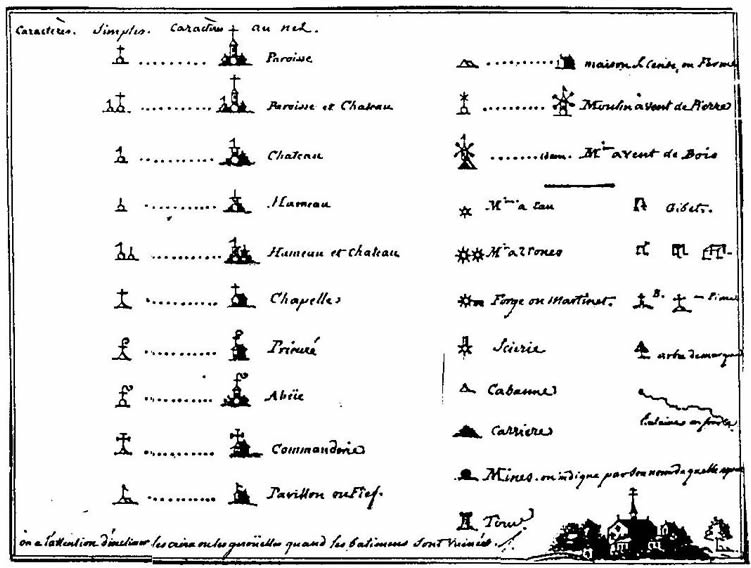 Caractères. Simples. Caractères au net.
Paroisse
Paroisse et Chateau
Chateau
Hameau
Hameau et Chateau
Chapelles
Prieuré
Abëie
Commanderie
Pavillon ou Fief.
maison de Cense, ou Ferme
Moulin àvent de Pierre
idem. M.in avent de Bois
M.in a Eau
M.in a 2 Tones
Forge ou Martinet.
Scierie
Cabanne
Carriere
Mines. on indique par son nom de quelle espece
Tour
Gibet.
B.
arbre de marque
on a l'attention d'incliner les croix ou les girouëttes quand les batimens sont ruinés.